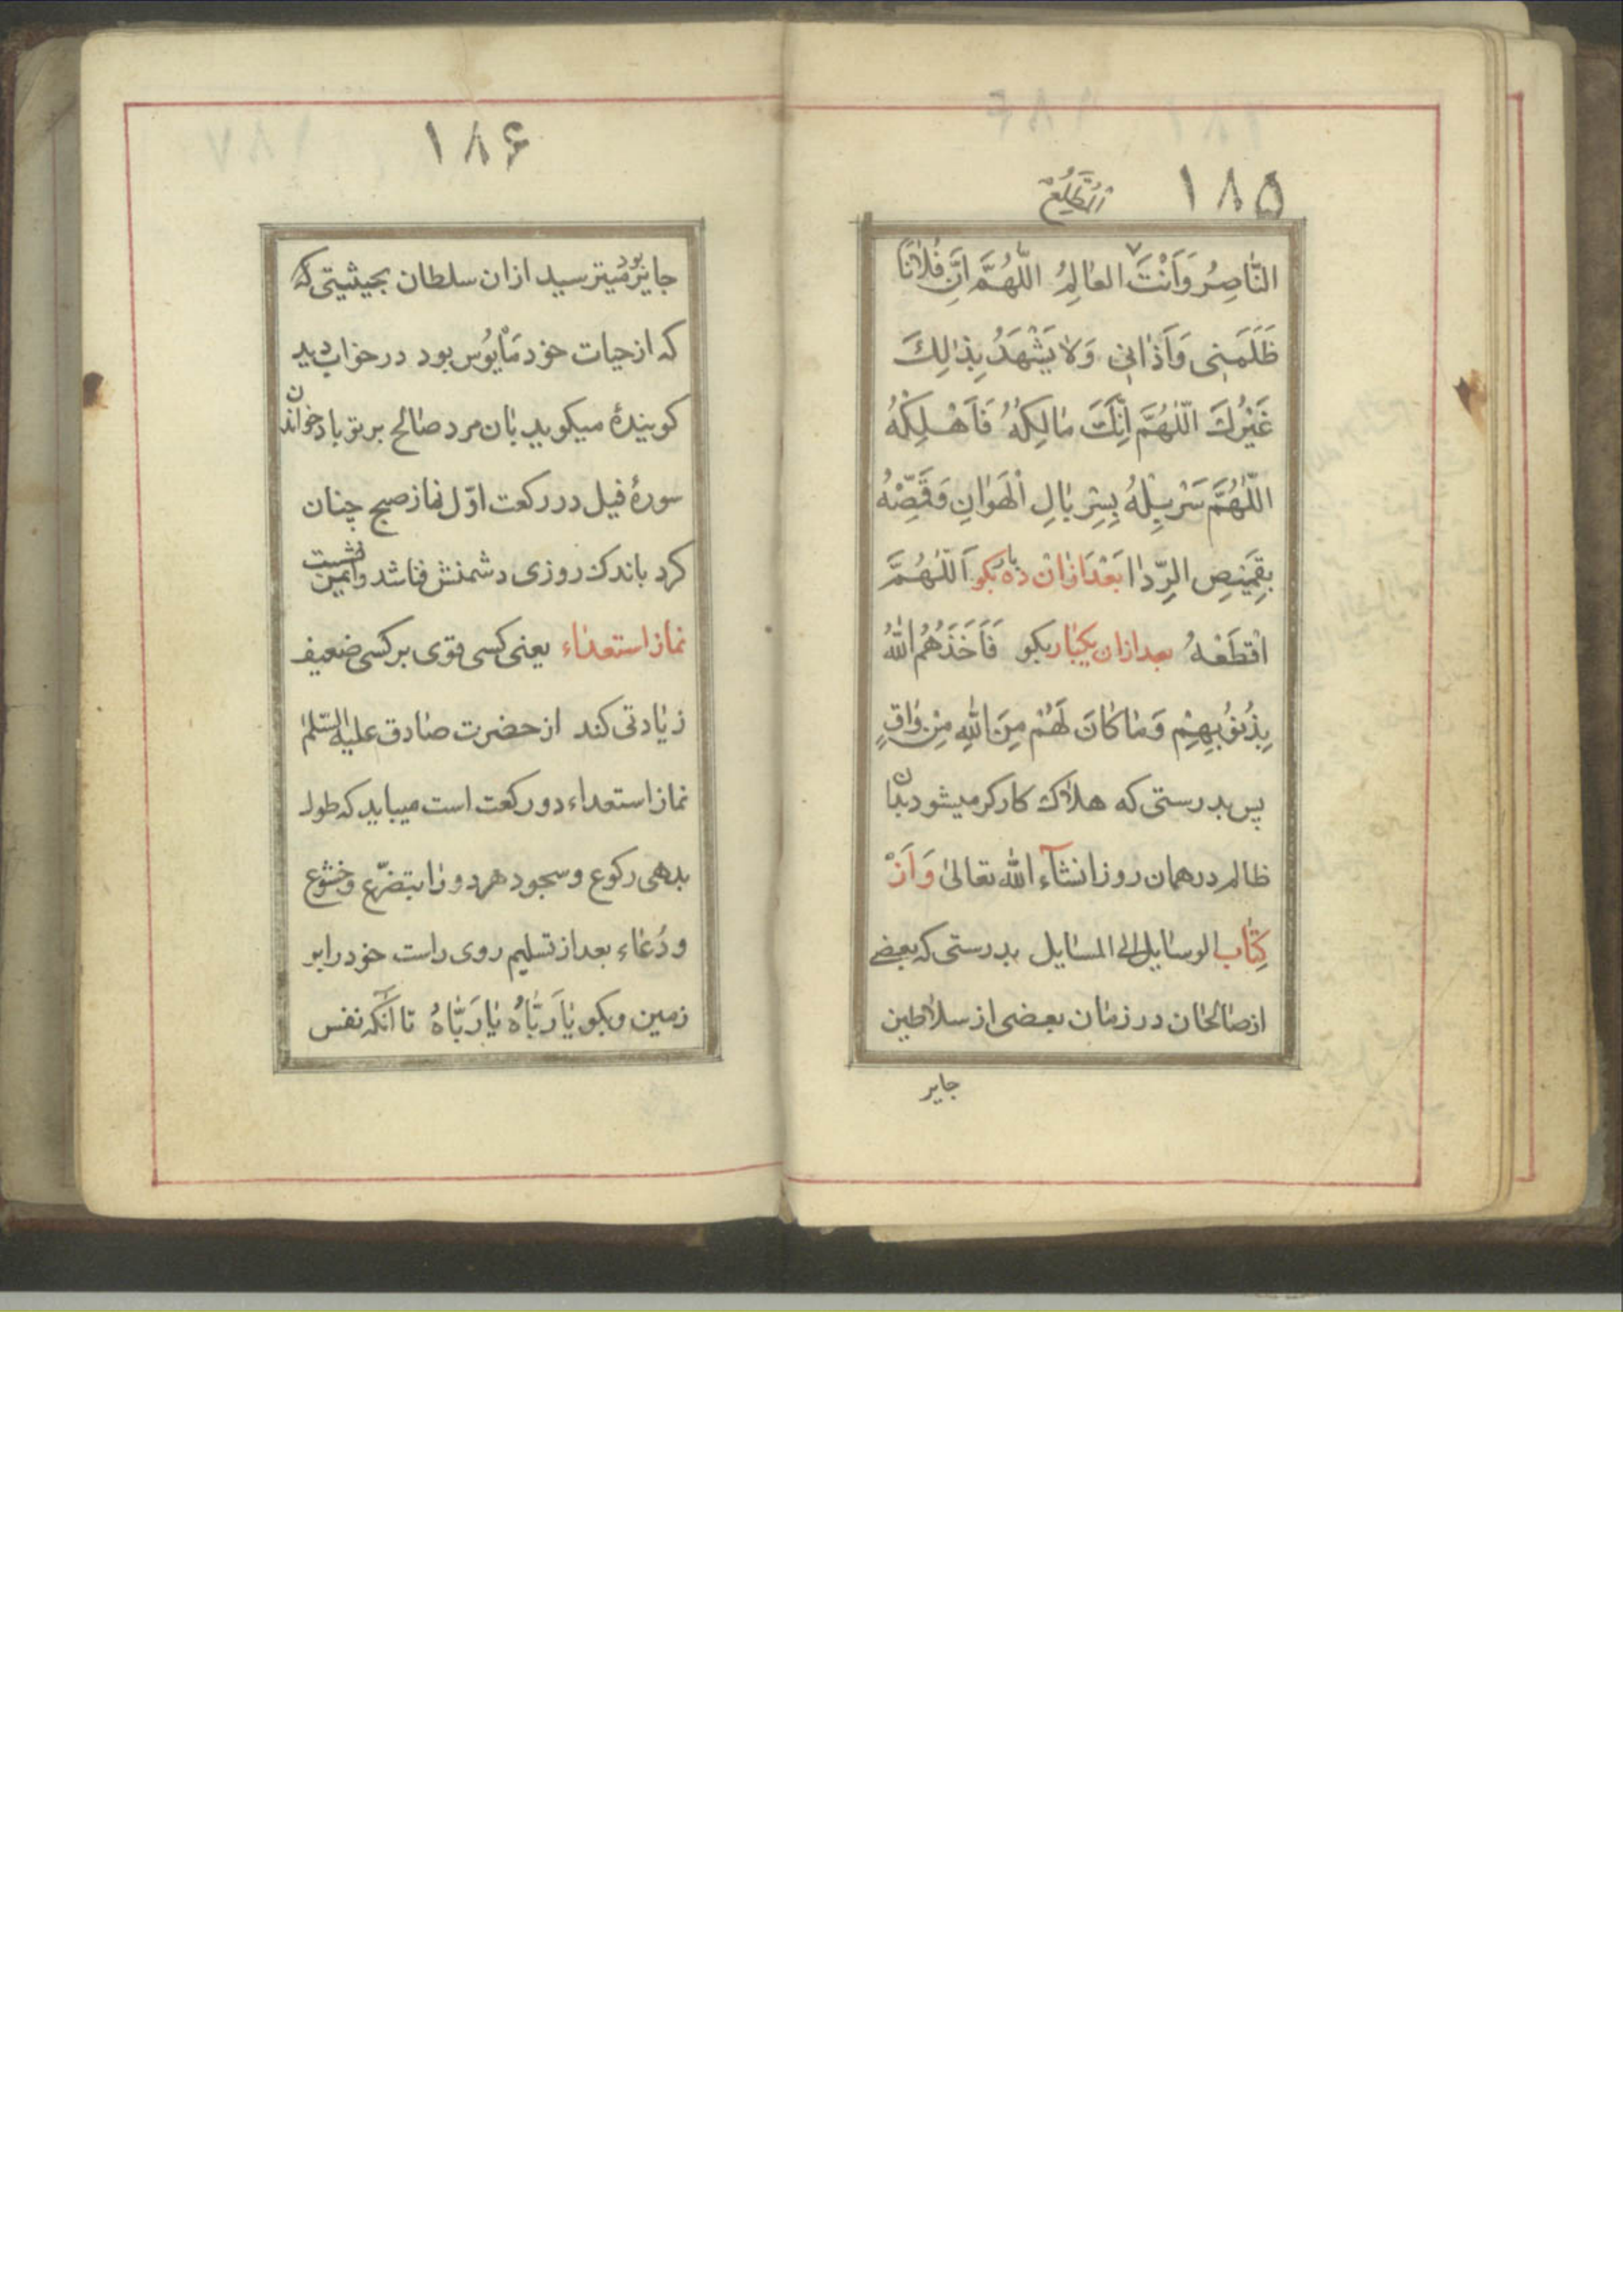 ۱۸۵
المُطَّلِعُ
النّاصِرُ وَاَنْتَ العالِمُ اللّهُمَّ اِنَّ فُلانًا
ظَلَمَنِی وَاَذانِی وَلا یَشْهَدُ بِذالِكَ
غَیْرُكَ اللّهُمَّ اِنَّكَ مالِكُهُ فَاَهْلِكْهُ
اللّهُمَّ سَرْبِلْهُ بِسِرْبالِ الْهَوانِ وَقَمِّصْهُ
بِقَمیصِ الرِّدا بَعْدَ ازان دَه بار بکو اَللّهُمَّ
اقْطَعْهُ بعد ازان یکبار بکو فَاَخَذَهُمُ اللّهُ
بِذُنُوبِهِمْ وَما كانَ لَهُمْ مِنَ اللّهِ مِنْ واقٍ
پس بدرستی که هلاك کارکر میشود بدان
ظالم در همان روز انشآء اللّه تعالی وَاَزْ
کِتاب الوسایل الی المسایل بدرستی که بعضی
از صالحان در زمان بعضی از سلاطین
جایر
۱۸۶
جایر بود میترسید ازان سلطان بحیثیتی که
که از حیات خود مَأیُوس بود در خواب دید
کویندۀ میکوید بان مرد صالح بر تو باد خواندن
سورۀ فیل در رکعت اوّل نماز صبح چنان
کرد باندك روزی دشمنش فنا شد و ایمن نشست
نماز استعداء یعنی کسی قوی بر کسی ضعیف
زیادتی کند از حضرت صادق علیه السّلم
نماز استعداء دو رکعت است میباید که طول
بدهی رکوع و سجود هر دو را بتضرّع و خشوع
و دُعاء بعد از تسلیم روی راست خود را بر
زمین و بکو یا رَبّاهُ یا رَبّاهُ تا آنکه نفس